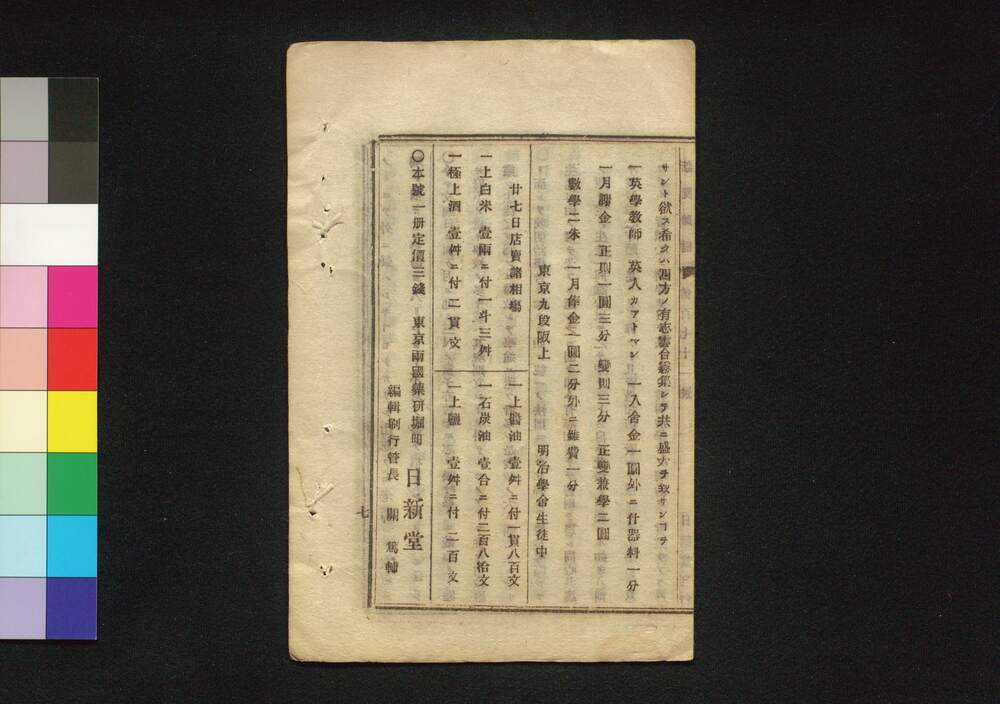 サント欲ス希クハ四方ノ有志雲台霧集シテ共ニ盛大ヲ致サンヿヲ
一英學教師 英人カアトマン 一入舍金一圓外ニ什器料一分
一月謝金 正則一圓三分 變則三分 正變兼學二圓
數學二朱 一月俸金一圓二分外ニ雜費一分
東京九段阪上 明治學舍生徒中
廿七日店賣諸相塲
一上白米 壹兩ニ付一斗三舛
一極上酒 壹舛ニ付二貫文
一上醬油 壹舛ニ付一貫八百文
一石炭油 壹合ニ付二百八拾文
一上鹽 壹舛ニ付二百文
〇本號一册定價三錢 東京兩國藥研堀町 日新堂
編輯刷行管長 關 篤輔
七